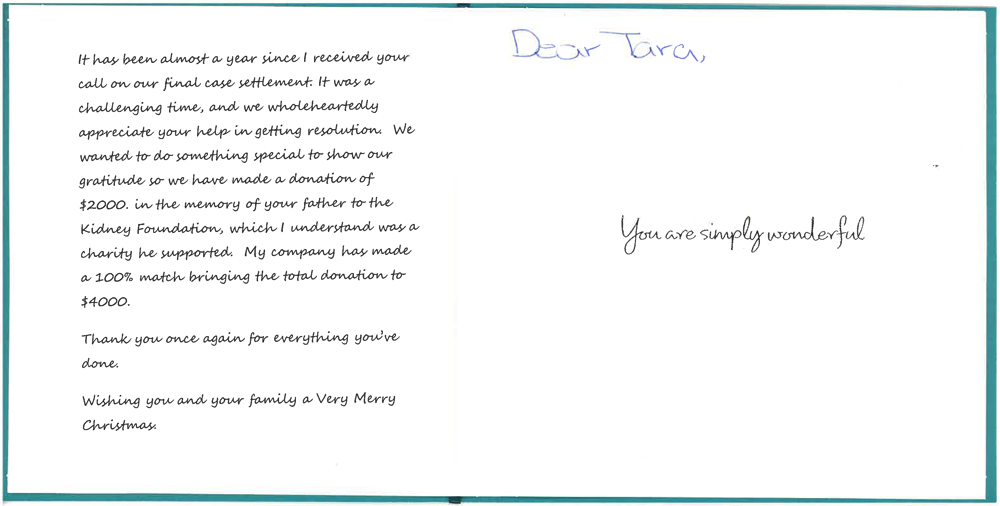 It has been almost a year since I received your
call on our final case settlement. It was a
challenging time, and we wholeheartedly
appreciate your help in getting resolution.  We
wanted to do something special to show our
gratitude so we have made a donation of
$2000. in the memory of your father to the
Kidney Foundation, which I understand was a
charity he supported.  My company has made
a 100% match bringing the total donation to
$4000.
Thank you once again for everything you've
done.
Wishing you and your family a Very Merry
Christmas.
Dear Tara,
You are simply wonderful